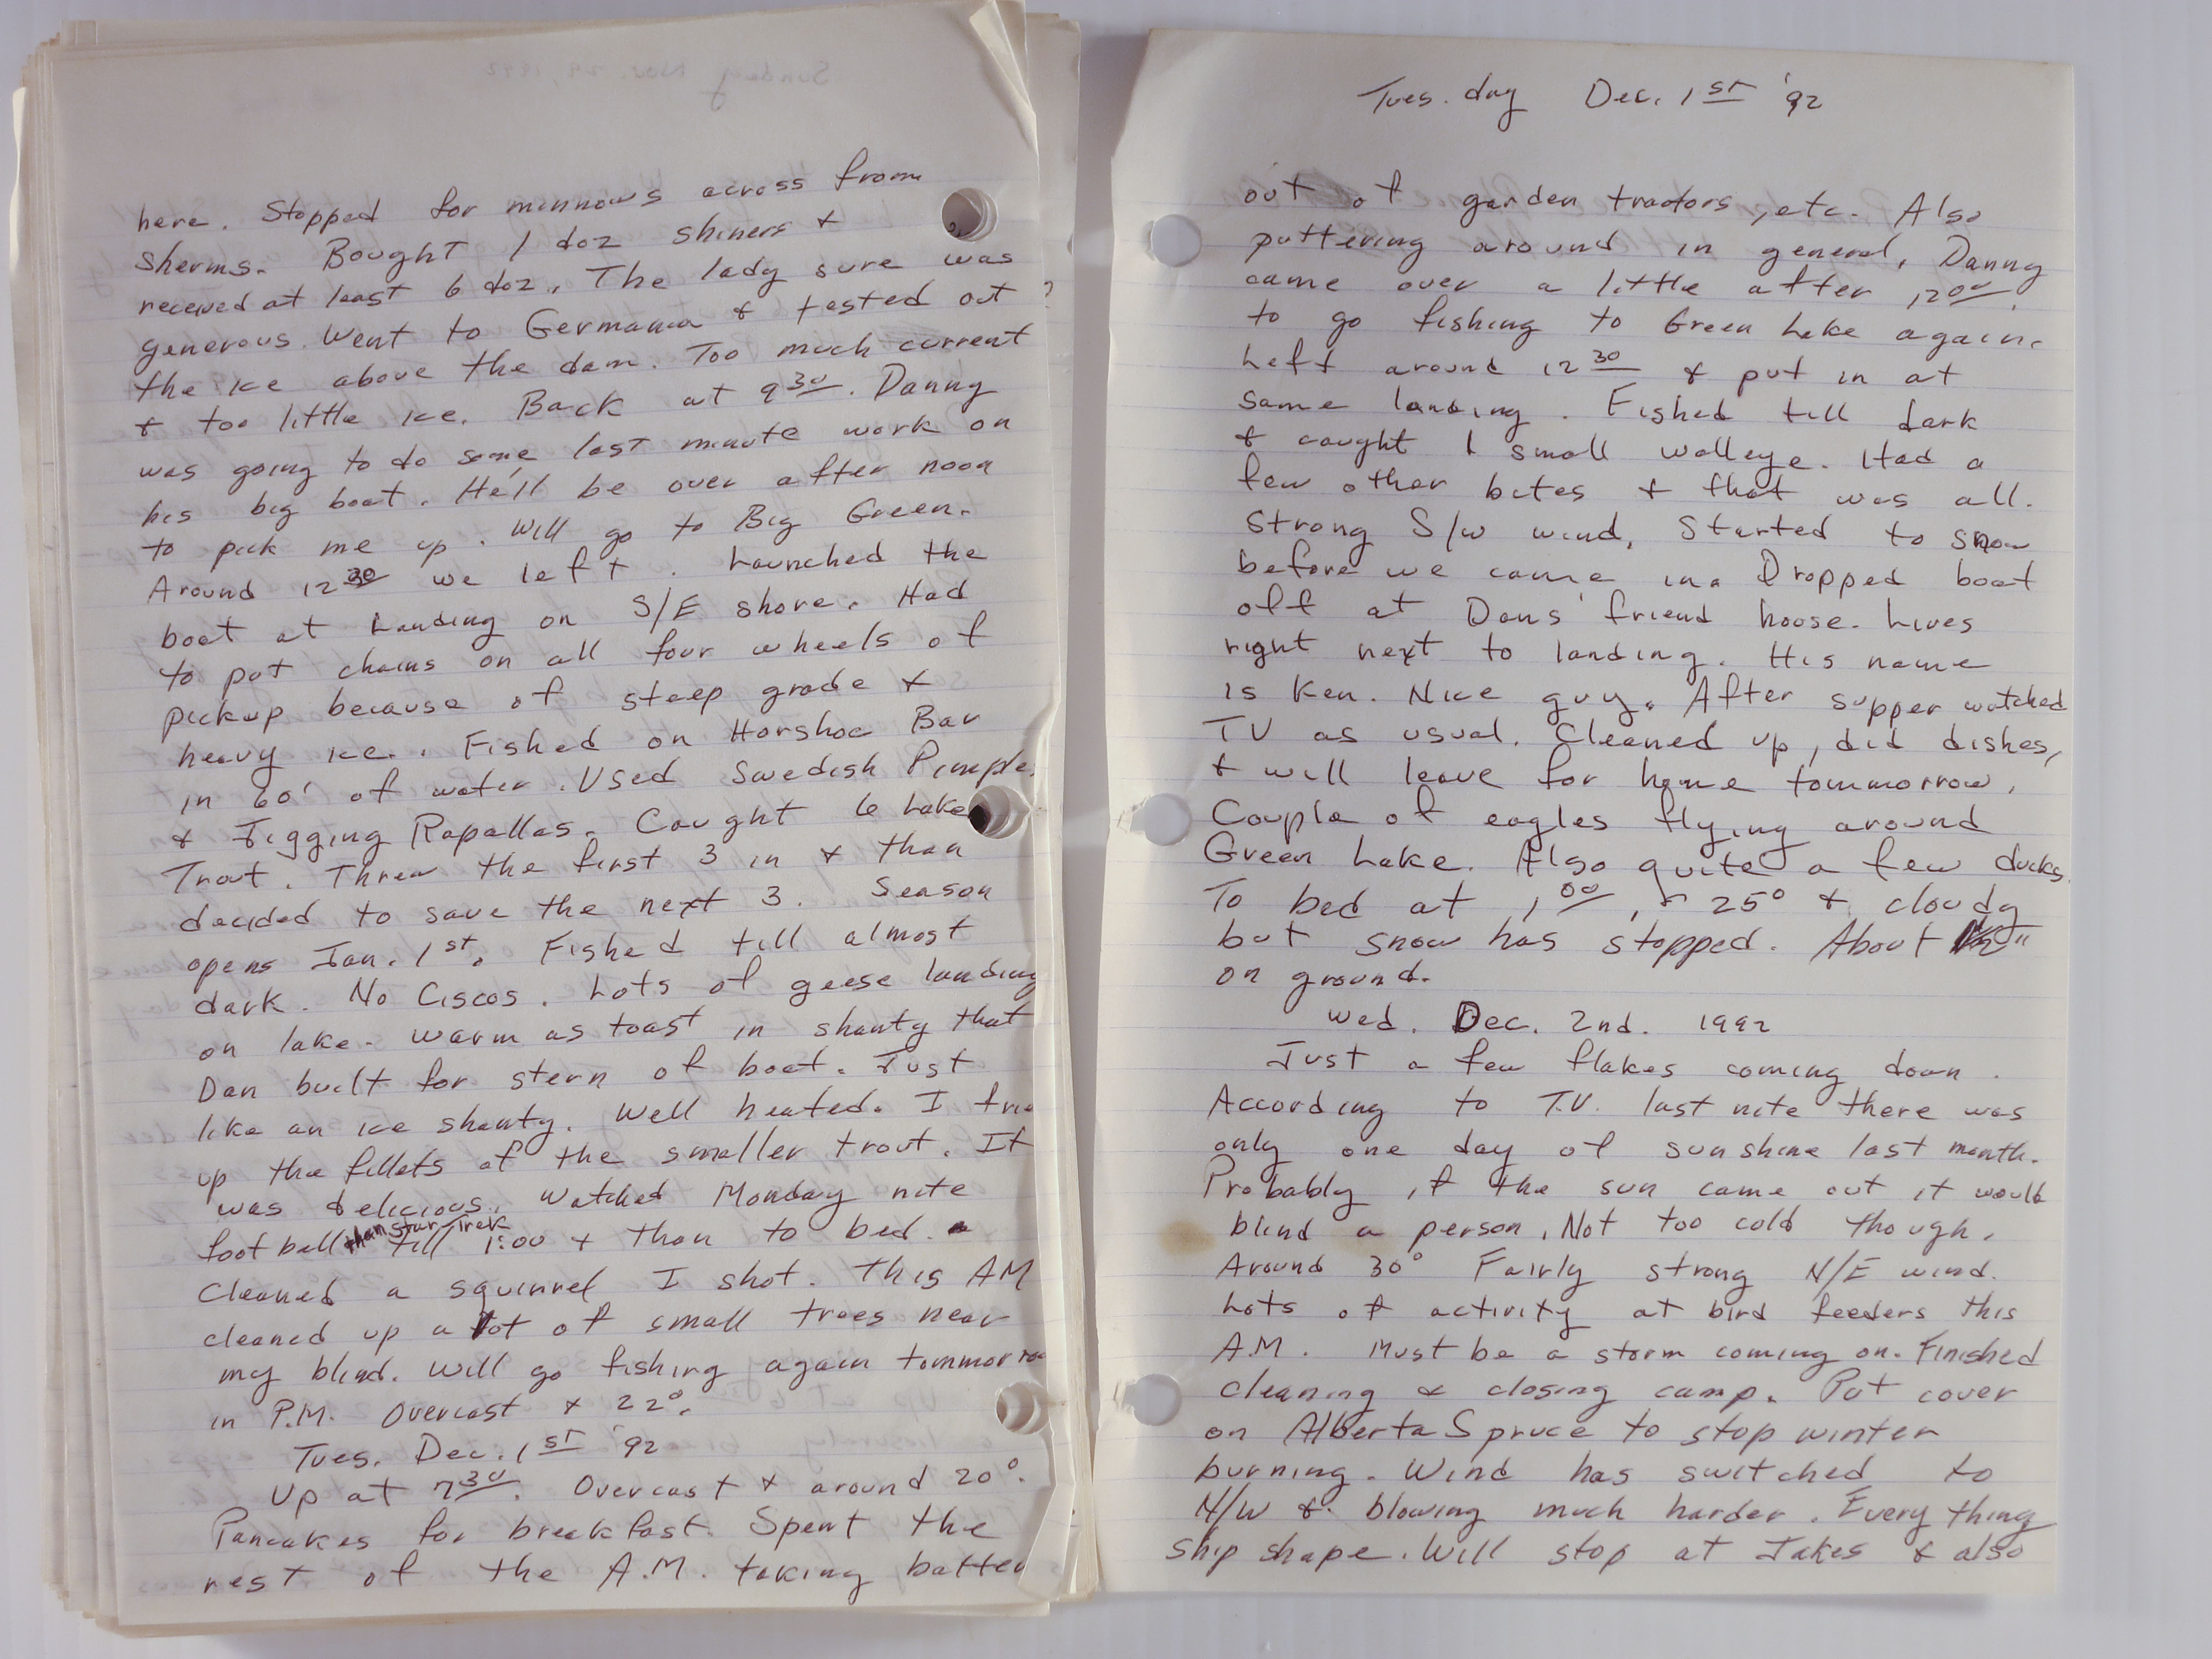 here. Stopped for minnows across from
sherms. Bought 1 doz shiners &
received at least 6 doz. The lady sure was
generous. Went to Germania & tested out
the ice above the dam. Too much current
& too little ice. Back at 9 30. Danny
was going to do some last minute work on
his big boat. He'll be over after noon
to pick me up. Will go to Big Green.
Around 12 30 we left. Launched the
boat at Landing on S/E shore. Had
to put chains on all four wheels of
pickup because of steep grade &
heavy ice. Fished on Horshoe Bar
in 60' of water. Used Swedish Pimples
& Jigging Rapallas. Caught 6 Lake
Trout. Threw the first 3 in & than
decided to save the next 3. Season
opens Jan. 1st. Fished till almost
dark. No Ciscos. Lots of geese landing
on lake. Warm as toast in shanty that
Dan built for stern of boat. Just
like an ice shanty. Well heated. I
up the fillets of the smaller trout. It
was delicious. Watched Monday nite
foot ball than Star Trek till 1:00 & than to bed.
Cleaned a squirrel I shot. This AM
cleaned up a lot of small trees near
my blind. Will go fishing again tommorrow
in P.M. Overcast & 22°.
Tues. Dec. 1st '92
Up at 7 30. Overcast & around 20°.
Pancakes for breakfast. Spent the
rest of the A.M. taking
Tues. day Dec. 1st '92
out of garden tractors, etc. Also
puttering around in general. Danny
came over a little after 12 00
to go fishing to Green Lake again.
Left around 12 30 & put in at
same landing. Fished till dark
& caught 1 small walleye. Had a
few other bites & that was all.
Strong S/W wind. Started to snow
before we came in. Dropped boat
off at Dans' friend house. Lives
right next to landing. His name
is Ken. Nice guy. After supper watched
TV as usual. Cleaned up, did dishes,
& will leave for home tommorrow.
Couple of eagles flying around
Green Lake. Also quite a few ducks.
To bed at 1 00, 25° & cloudy
but snow has stopped. About
on ground.
Wed. Dec. 2nd. 1992
Just a few flakes coming down.
According to T.V. last nite there was
only one day of sunshine last month.
Probably if the sun came out it would
blind a person. Not too cold though.
Around 30° Fairly strong N/E wind.
Lots of activity at bird feeders this
A.M. Must be a storm coming on. Finished
cleaning & closing camp. Put cover
on Alberta Spruce to stop winter
burning. Wind has switched to
N/W & blowing much harder. Every thing
ship shape. Will stop at Jakes & also